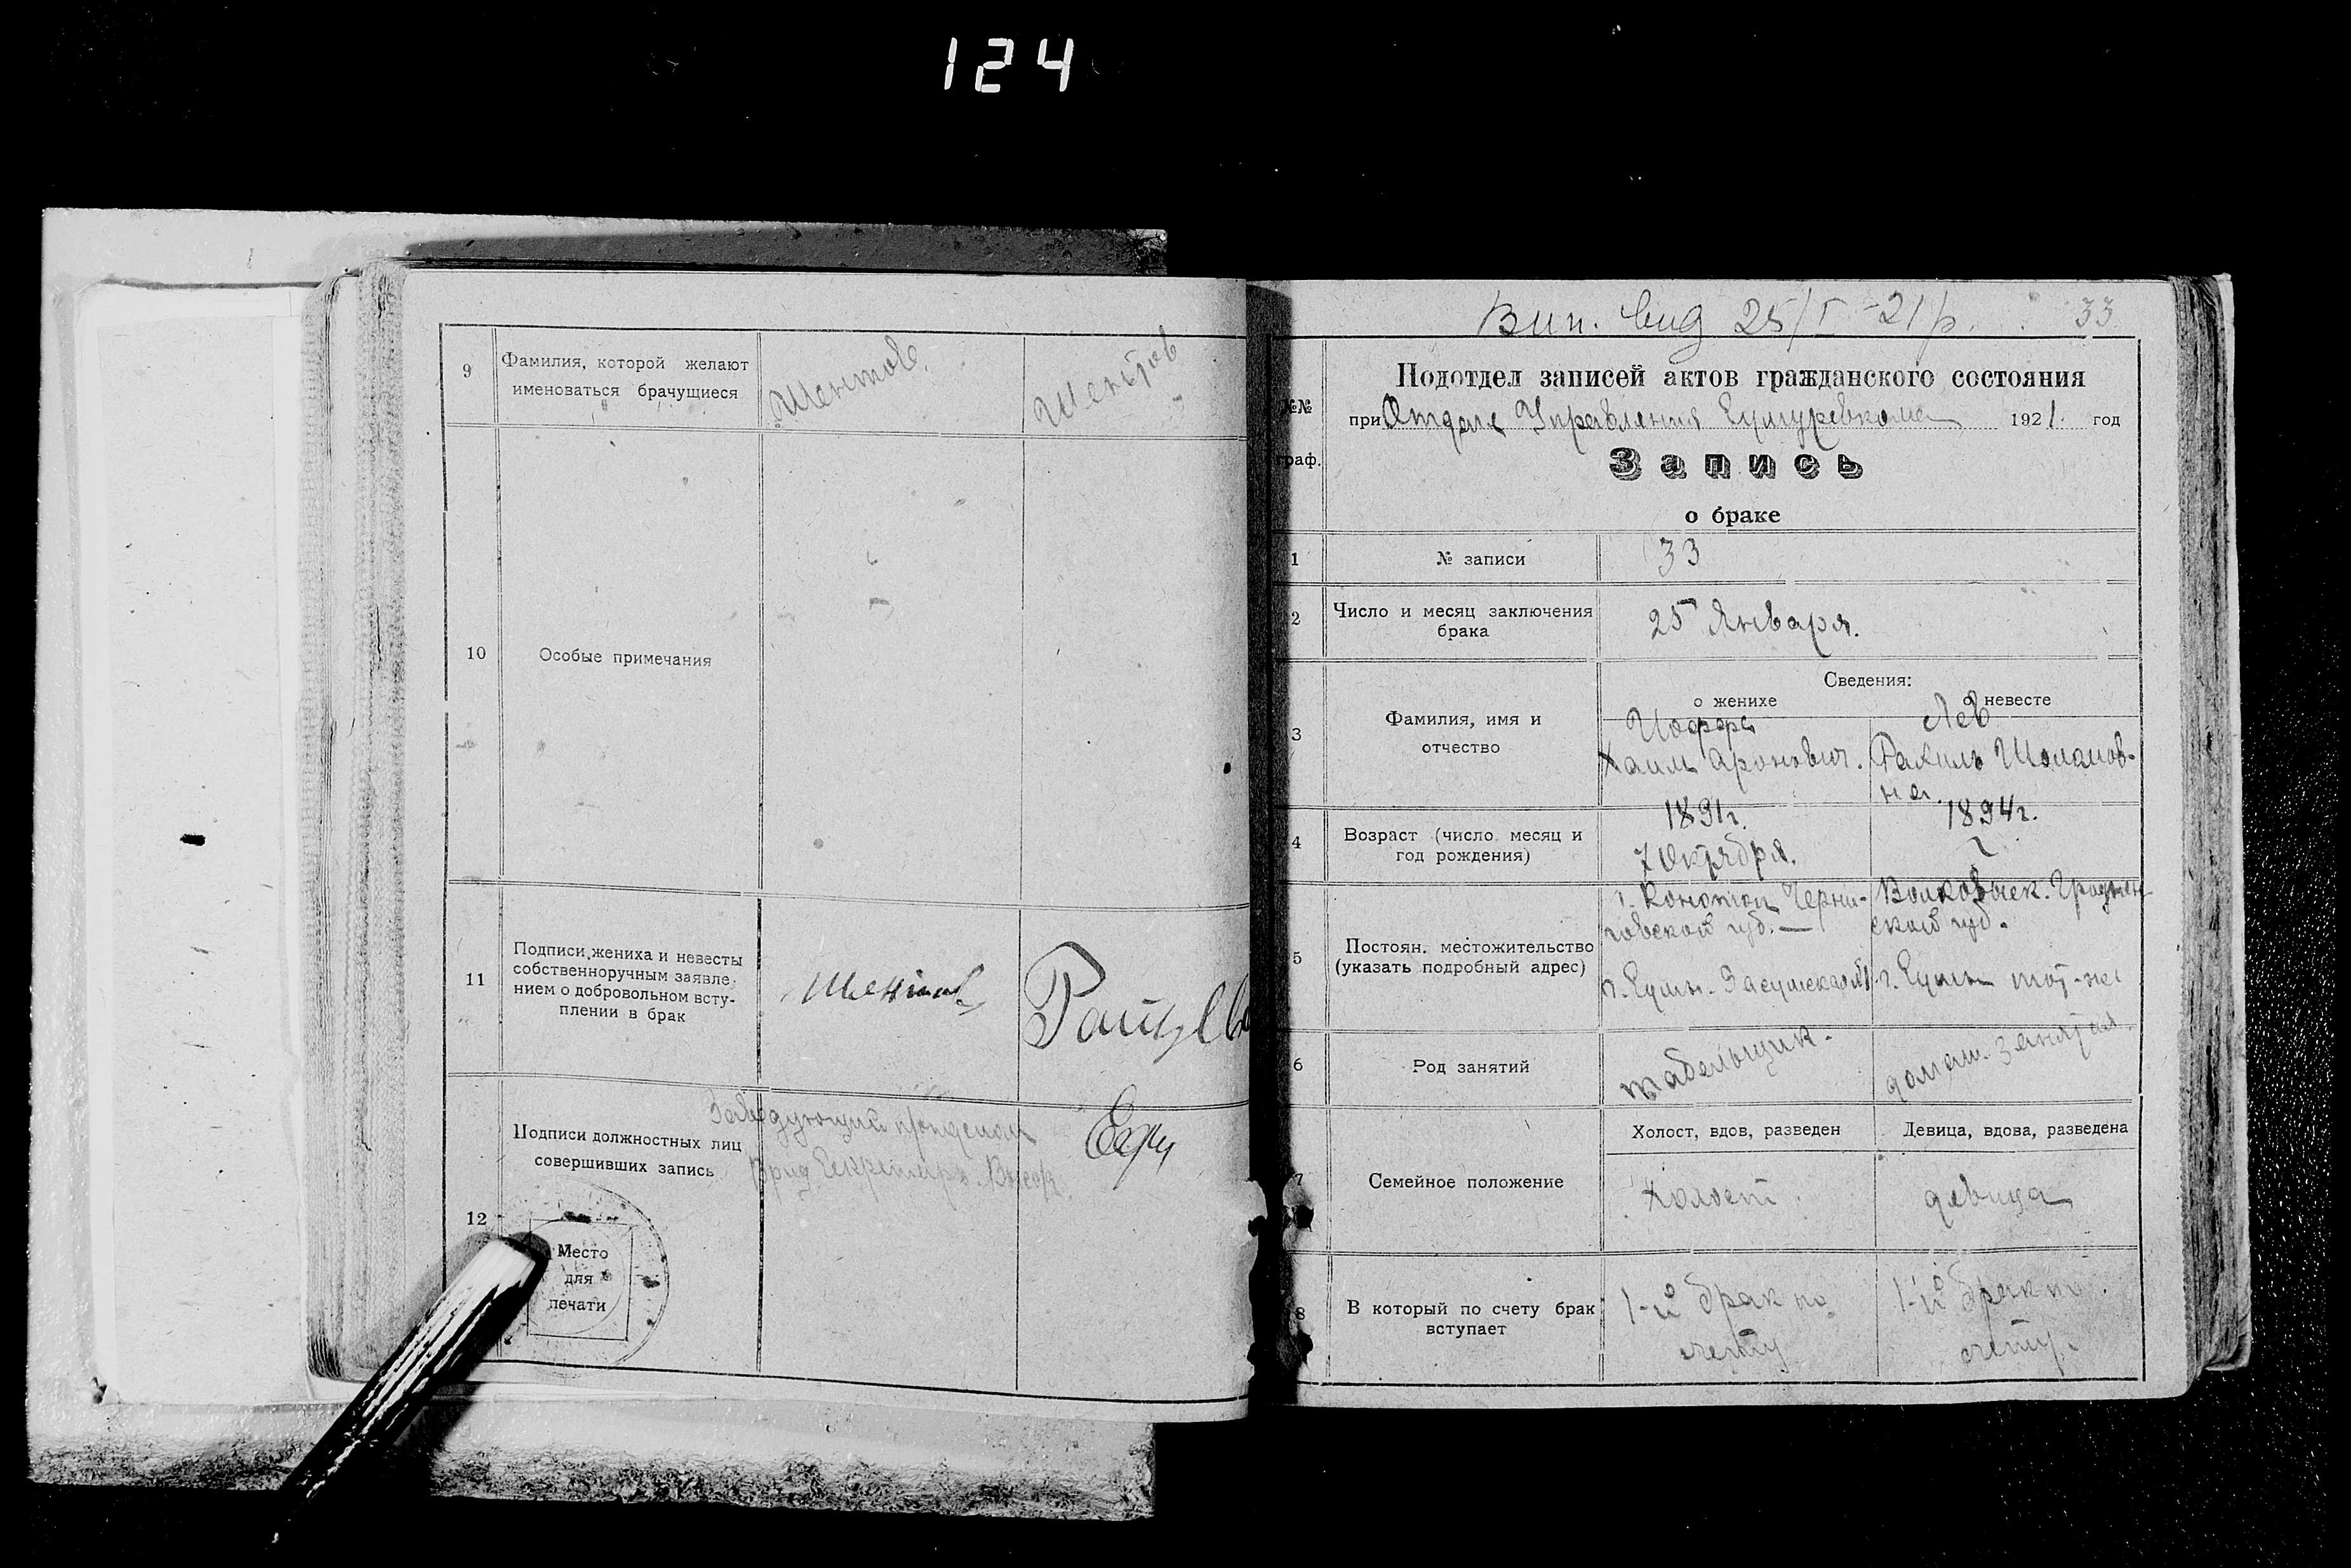 124
9
Фамилия, которой желают
именоваться брачущиеся
Шентов.
Шентов
10
Особые примечания
11
Подписи жениха и невесты
собственноручным заявле-
нием о добровольном всту-
плении в брак
Шентов
12
Подписи должностных лиц
совершивших запись
Заведующий
Секретарь
Место
для
печати
Вип. вид 25/I-21 р.
33
№№
граф.
Подотдел записей актов гражданского состояния
при Отделе Управления 1921. год
Запись
о браке
1
№ записи
33
2
Число и месяц заключения
брака
25 Января.
3
Фамилия, имя и
отчество
Сведения:
о женихе
о невесте
Иоффе
Хаим Аронович.
Лев
Рахиль Шоломов-
на.
4
Возраст (число месяц и
год рождения)
1891г.
7 Октября.
1894г.
5
Постоян. местожительство
(указать подробный адрес)
г. Конотоп Черни-
говской губ. —
Волковыск. Гроднен
ской губ.
6
Род занятий
табельщик.
домаш. занятия.
7
Семейное положение
Холост, вдов, разведен
Девица, вдова, разведена
Холост.
девица
8
В который по счету брак
вступает
1-й брак по
счету
1-й брак по
счету.